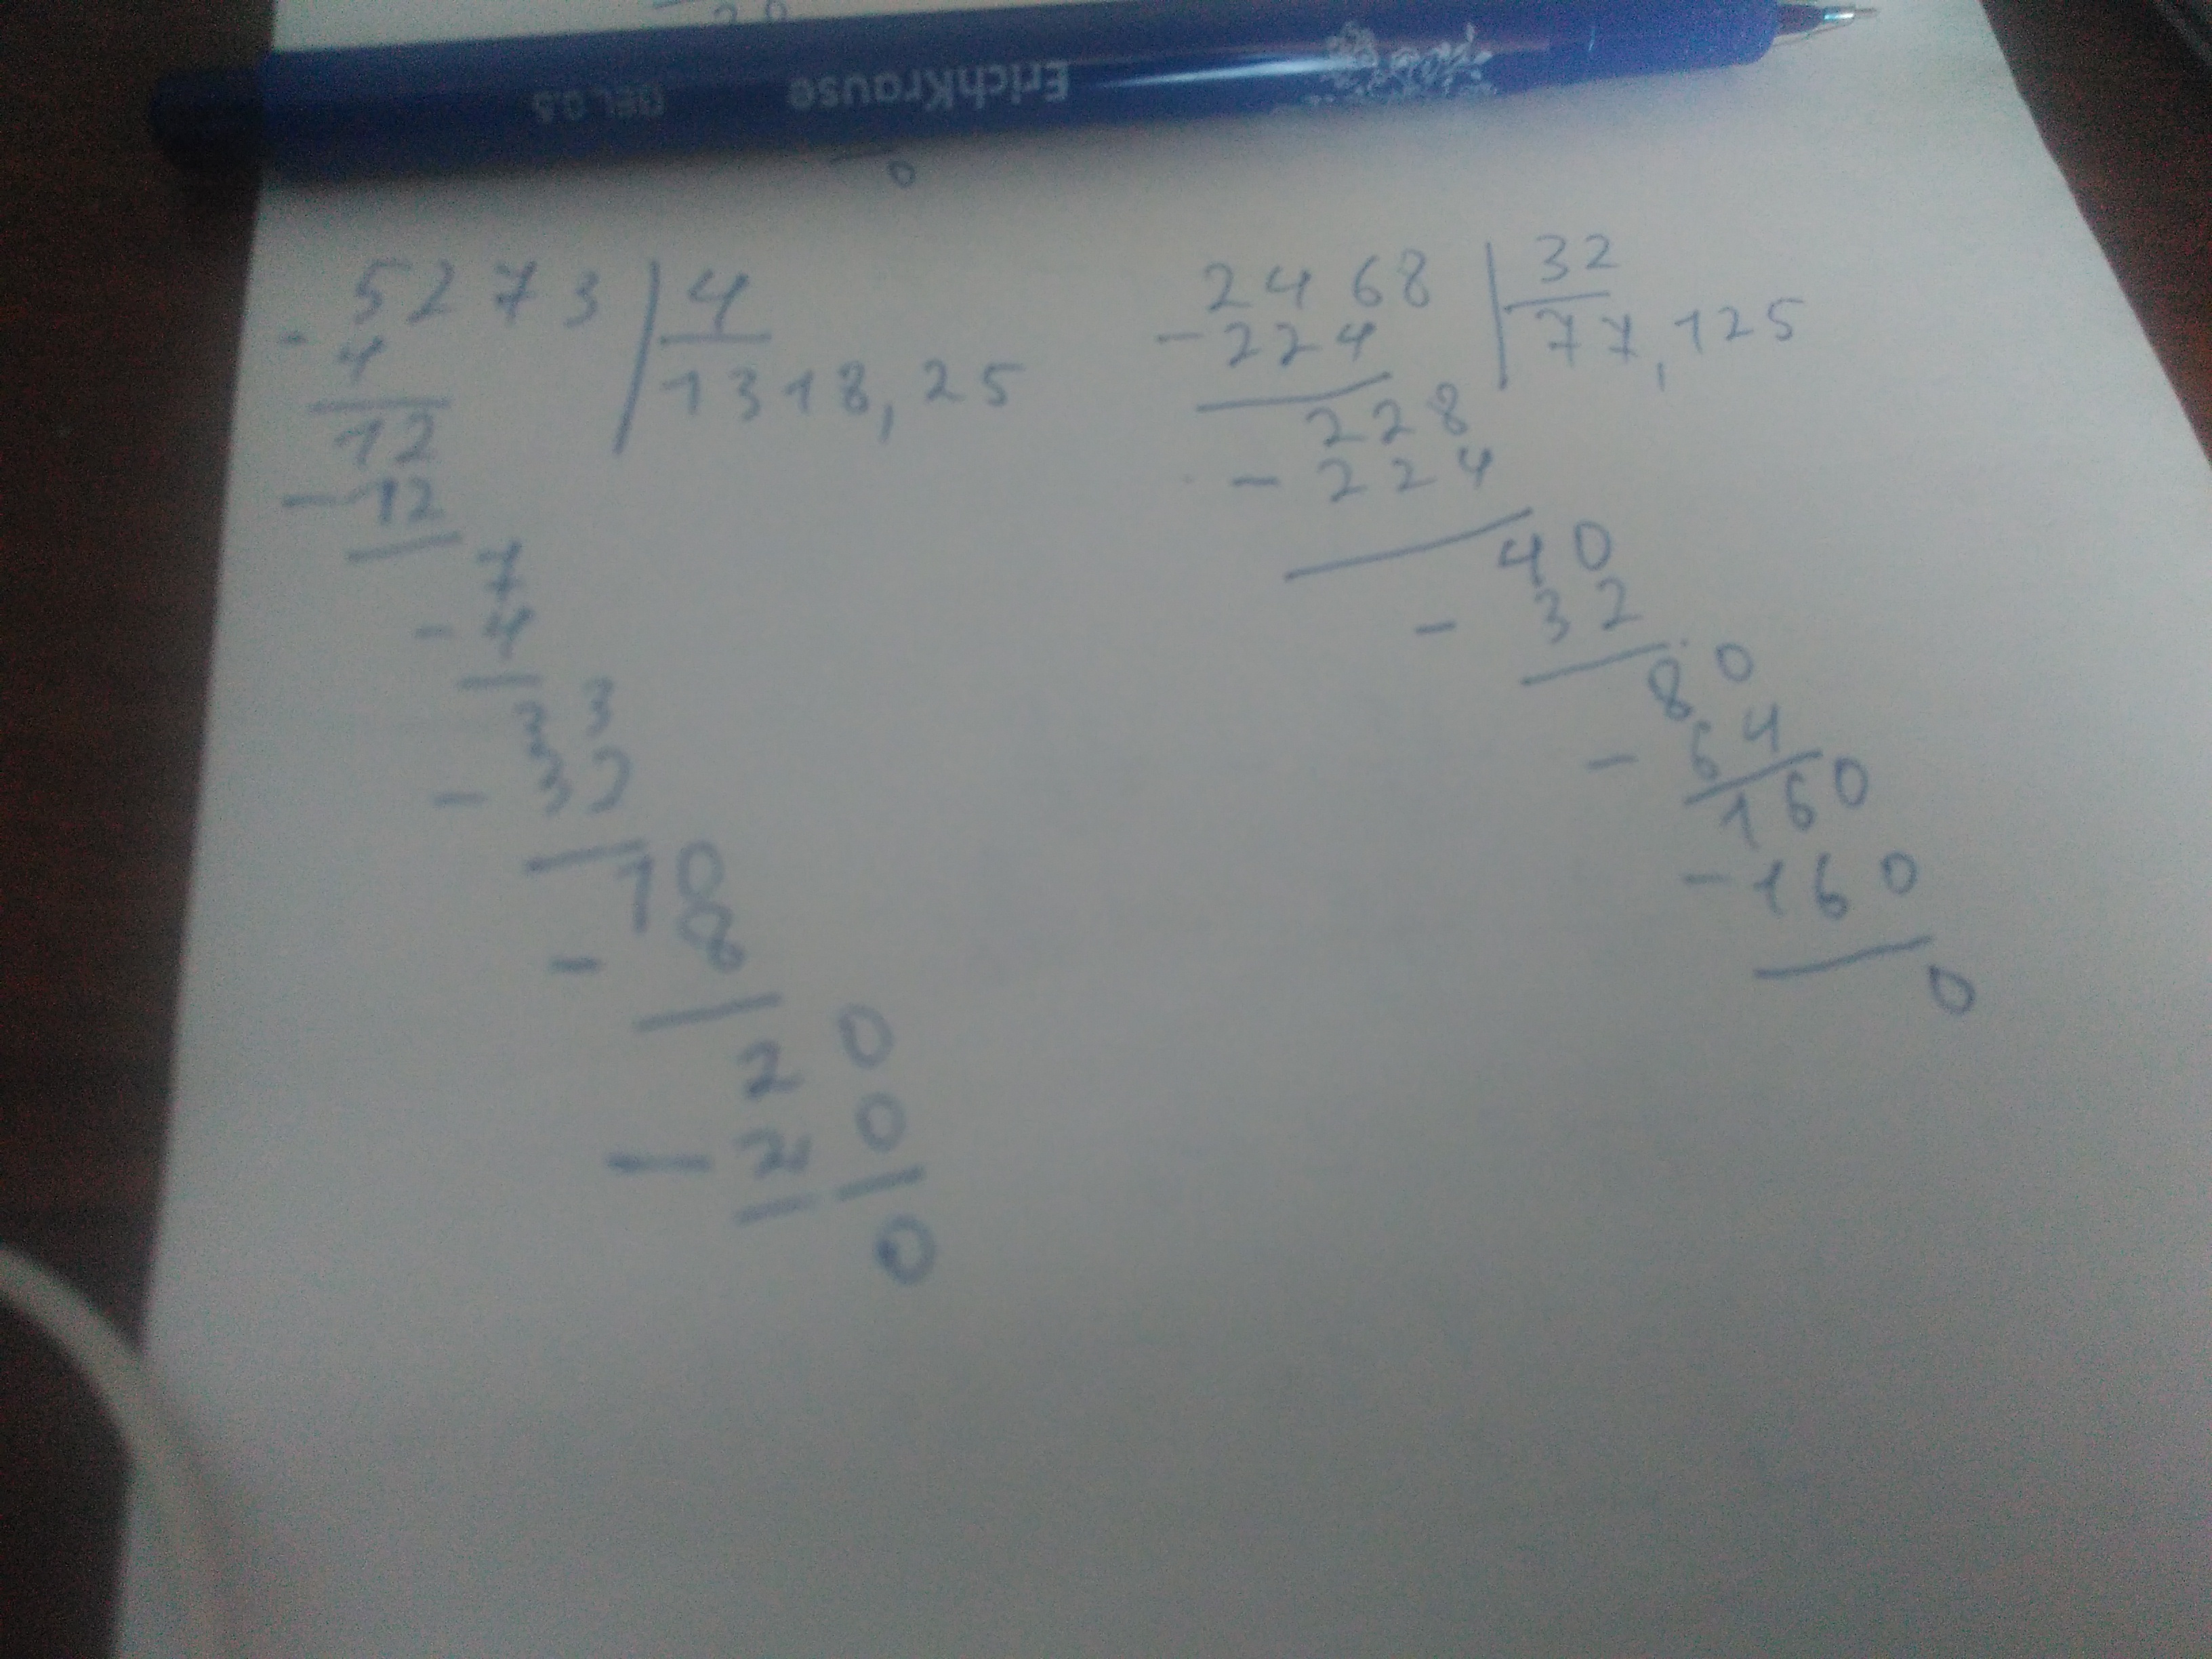 ErichKrause
GEL 0.5
0
5273 | 4
- 4
1318,25
12
- 12
7
- 4
33
- 32
10
- 8
20
- 20
0
2468 | 32
- 224
77,125
228
- 224
40
- 32
80
- 64
160
- 160
0